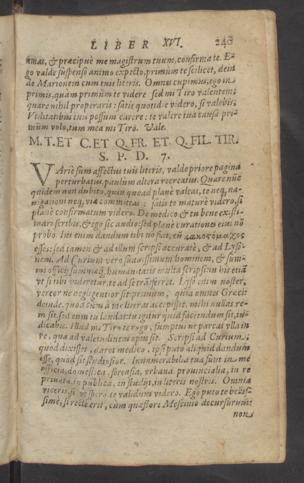 LIBER XVI. 246
amas, & præcipuè me magistrum tuum, confirma te. E-
go valde suspenso animo expecto, primùm te scilicet, dein
de Marionem cum tuis literis. Omnes cupimus, ego in
primis, quàm primùm te videre, sed mi Tiro valentem:
quare nihil properaris: satis quotidie videro, si valebis.
Vtilitatibus tuis possum carere: te valere tua causa pri-
mùm volo, tum mea mi Tiro. Vale.
M. T. ET C. ET Q. FR. ET Q. FIL. TIR.
S. P. D. 7.
VArie sum affectus tuis literis, valde priore pagina
perturbatus, paulùm altera recreatus. Quare nũc
quidem non dubito, quin quoad planè valeas, te neq; na-
uigationi neq; viæ committas: satis te maturè videro, si
planè confirmatum videro. De medico & tu bene existi-
mari scribis, & ego sic audio: sed planè curationes eius nõ
probo. Ius enim dandum tibi nõ fuit, cũ κακοστόμαχος
esses: sed tamen & ad illum scripsi accuratè, & ad Lyso-
nem. Ad Curium verò suauissimum hominem, & sum-
mi officij summæq; humanitatis multa scripsi: in his etiã
vt si tibi videretur, te ad se trãsferret. Lyso enim noster,
vereor ne negligentior sit: primùm, quia omnes Græci:
deinde, quòd cùm à me literas accepisset, mihi nullas re-
misit, sed eum tu laudas: tu igitur quid faciendum sit, iu-
dicabis. Illud mi Tiro te rogo, sumptui ne parcas vlla in
re, quæ ad valetudinem opus sit. Scripsi ad Curium,
quod dixisses, daret: medico ipsi puto aliquid dandum
esse, quò sit studiosior. Innumerabilia tua sunt in me
officia, domestica, forensia, vrbana, prouincialia, in re
priuata, in publica, in studijs, in literis nostris. Omnia
viceris, si, vt spero, te validum videro. Ego puto te bellis-
simè, si rectè erit, cum quæstore Mescinio decursurum:
non